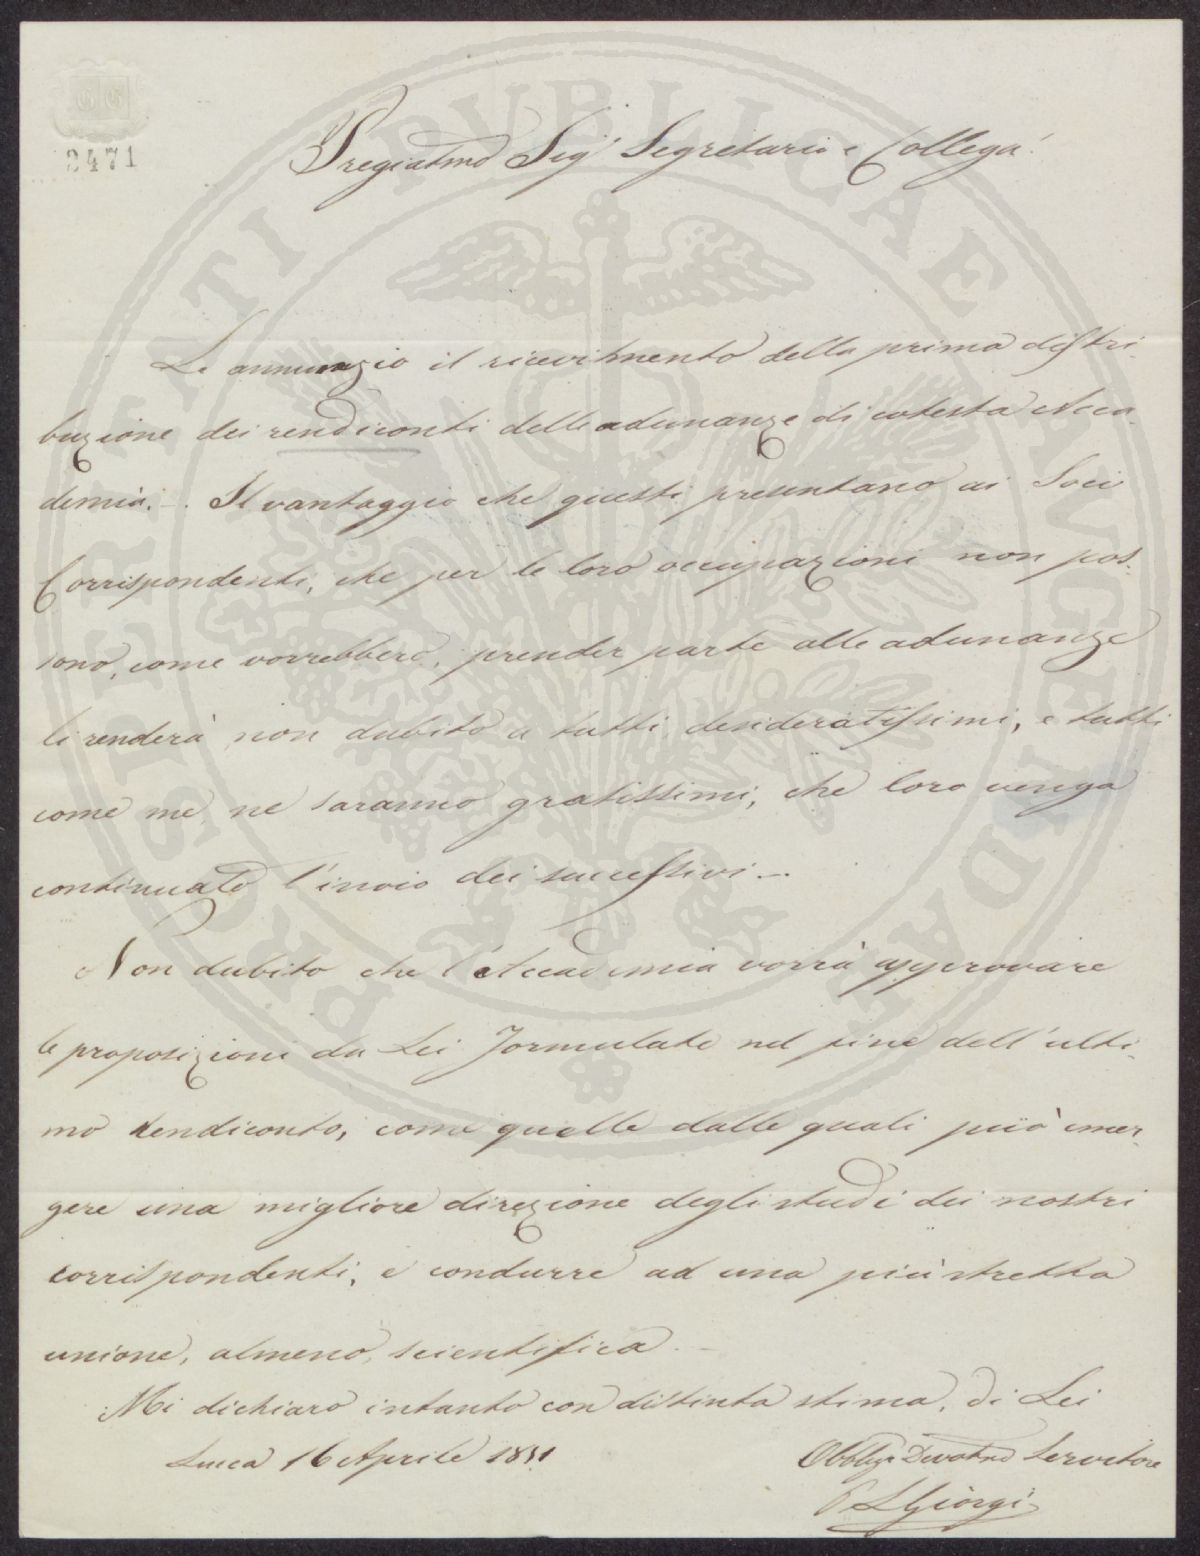 2471
Pregiatmo Sigr Segretario e Collega
Le annunzio il ricevimento della prima distri-
buzione dei rendiconti delle adunanze di cotesta Acca-
demia. -. Il vantaggio che questi presentano ai Soci
Corrispondenti, che per le loro occupazioni non pos-
sono, come vorrebbero, prender parte alle adunanze
li renderà non dubito a tutti desideratissimi, e tutti
come me ne saranno gratissimi, che loro venga
continuato l'invio dei successivi. -
Non dubito che l'Accademia vorrà approvare
le proposizioni da Lei formulate nel fine dell'ulti-
mo rendiconto, come quelle dalle quali può emer-
gere una migliore direzione degli studi dei nostri
corrispondenti, e condurre ad una più stretta
unione, almeno, scientifica. -
Mi dichiaro intanto con distinta stima, di Lei
Lucca 16 Aprile 1851
Obblig. Devotmo Servitore
L Giorgi
PROSPERITATI PVBLICAE AVGENDAE